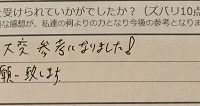 受けられていかがでしたか?(ズバリ10点
な感想が、私達の何よりの力となり今後の参考となりま
大変 参考になりました!
願い致します。